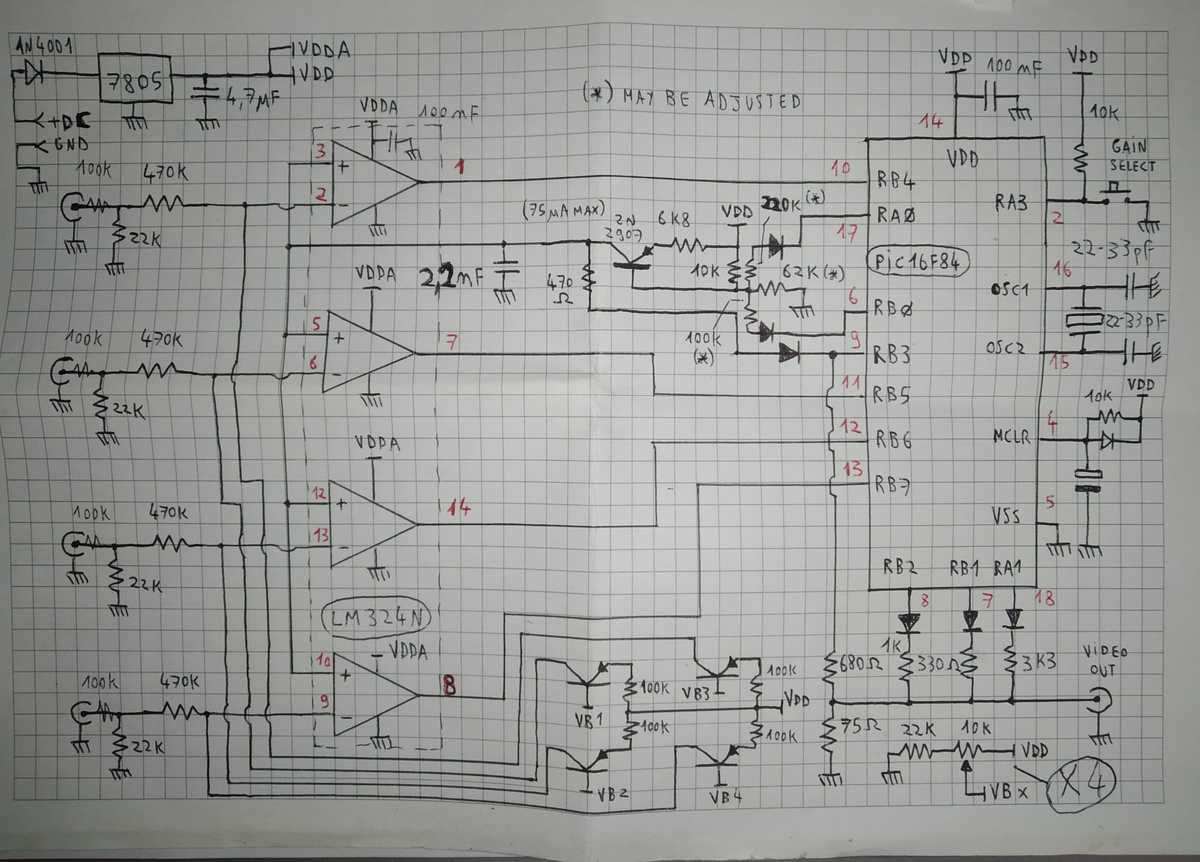 1N4001
7805
VDDA
VDD
4,7µF
+DC
GND
(*) MAY BE ADJUSTED
VDDA
100nF
VDD
100nF
VDD
10K
GAIN
SELECT
14
VDD
100K
470K
22K
3
+
2
-
1
10
RB4
RA0
17
RA3
2
(75µA MAX)
2N
2907
6K8
VDD
220K (*)
PiC16F84
22-33pF
16
OSC1
2,2nF
470
Ω
10K
62K(*)
100K
(*)
6
RB0
9
RB3
22-33pF
OSC2
15
VDDA
100K
470K
22K
5
+
6
-
7
11
RB5
12
RB6
13
RB7
10K
VDD
MCLR
4
VSS
5
VDDA
100K
470K
22K
12
+
13
-
14
LM324N
RB2
RB1
RA1
8
7
18
1K
680Ω
330Ω
3K3
ViDEO
OUT
VDDA
100K
470K
22K
10
+
9
-
8
VB1
100K
VB3
100K
VDD
VB2
100K
VB4
100K
75Ω
22K
10K
VDD
VBx
X4